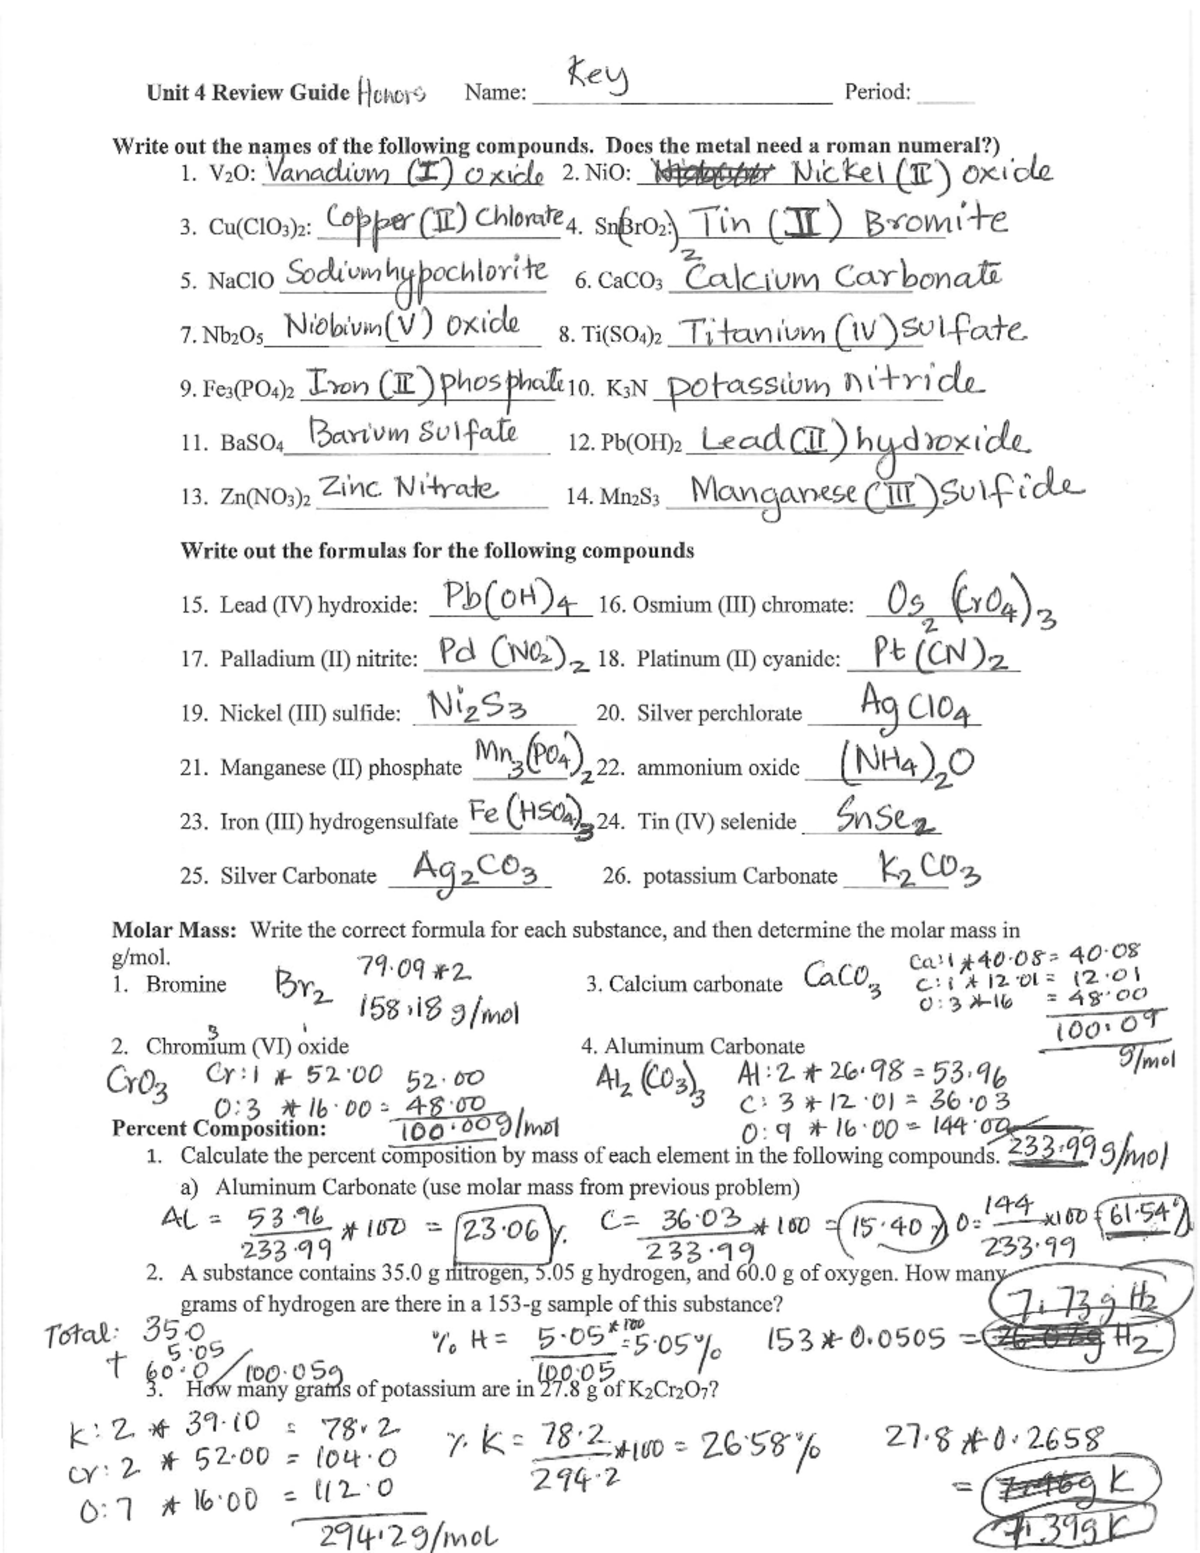 Unit 4 Review Guide Honors Name: Key Period:
Write out the names of the following compounds. Does the metal need a roman numeral?)
1. V2O: Vanadium (I) oxide 2. NiO: Nickel (II) oxide
3. Cu(ClO3)2: Copper (II) Chlorate 4. Sn(BrO2)2 Tin (II) Bromite
5. NaClO Sodium hypochlorite 6. CaCO3 Calcium Carbonate
7. Nb2O5 Niobium (V) oxide 8. Ti(SO4)2 Titanium (IV) sulfate
9. Fe3(PO4)2 Iron (II) phosphate 10. K3N potassium nitride
11. BaSO4 Barium Sulfate 12. Pb(OH)2 Lead (II) hydroxide
13. Zn(NO3)2 Zinc Nitrate 14. Mn2S3 Manganese (III) Sulfide
Write out the formulas for the following compounds
15. Lead (IV) hydroxide: Pb(OH)4 16. Osmium (III) chromate: Os2(CrO4)3
17. Palladium (II) nitrite: Pd (NO2)2 18. Platinum (II) cyanide: Pt (CN)2
19. Nickel (III) sulfide: Ni2S3 20. Silver perchlorate AgClO4
21. Manganese (II) phosphate Mn3(PO4)2 22. ammonium oxide (NH4)2O
23. Iron (III) hydrogensulfate Fe (HSO4)3 24. Tin (IV) selenide SnSe2
25. Silver Carbonate Ag2CO3 26. potassium Carbonate K2CO3
Molar Mass: Write the correct formula for each substance, and then determine the molar mass in
g/mol.
1. Bromine Br2 79.09 * 2
158.18 g/mol
3. Calcium carbonate CaCO3 Ca: 1 * 40.08 = 40.08
C: 1 * 12.01 = 12.01
O: 3 * 16 = 48.00
100.09
g/mol
2. Chromium (VI) oxide 3 1
CrO3 Cr: 1 * 52.00 52.00
O: 3 * 16.00 = 48.00
100.00 g/mol
4. Aluminum Carbonate
Al2(CO3)3 Al: 2 * 26.98 = 53.96
C: 3 * 12.01 = 36.03
O: 9 * 16.00 = 144.00
233.99 g/mol
Percent Composition:
1. Calculate the percent composition by mass of each element in the following compounds.
a) Aluminum Carbonate (use molar mass from previous problem)
AL = 53.96 * 100 = 23.06 % C = 36.03 * 100 = 15.40 % O = 144 x100 = 61.54 %
233.99 233.99 233.99
2. A substance contains 35.0 g nitrogen, 5.05 g hydrogen, and 60.0 g of oxygen. How many
grams of hydrogen are there in a 153-g sample of this substance? 7.73 g H2
Total: 35.0
5.05
+ 60.0 / 100.05g
% H = 5.05 * 100 = 5.05 % 153 * 0.0505 = g H2
100.05
3. How many grams of potassium are in 27.8 g of K2Cr2O7?
K: 2 * 39.10 = 78.2
Cr: 2 * 52.00 = 104.0
O: 7 * 16.00 = 112.0
294.2 g/mol
% K = 78.2 * 100 = 26.58 %
294.2
27.8 * 0.2658
= g K
7.39 g K